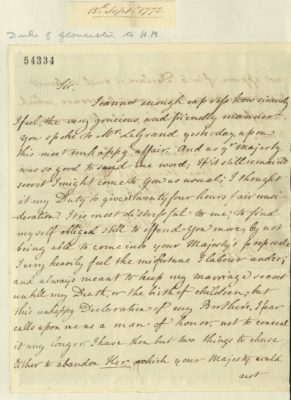 15th Septr 1772
Duke of Gloucester to H.M.
54334
Sir,
I cannot enough express how sincerely
I feel, the very gracious, and friendly manner
you spoke to Mr. LeGrand yesterday, upon
this most unhappy affair. And as yr. Majesty
was so good to send me word, If it still remained
secret I might come to You as usual; I thought
it my Duty to give it twenty four hours fair consi-
deration. It is most distressful to me to find
myself obliged still to offend You more, by not
being able to come into your Majesty's proposals
I very heavily feel the misfortune I labour under;
and always meant to keep my marriage secret
untill my Death, or the birth of children; but
this unhappy Declaration of my Brother's, I fear
calls upon me as a man of honor, not to conceal
it any longer. I have then but two things to chuse
Either to abandon Her, which your Majesty would
not